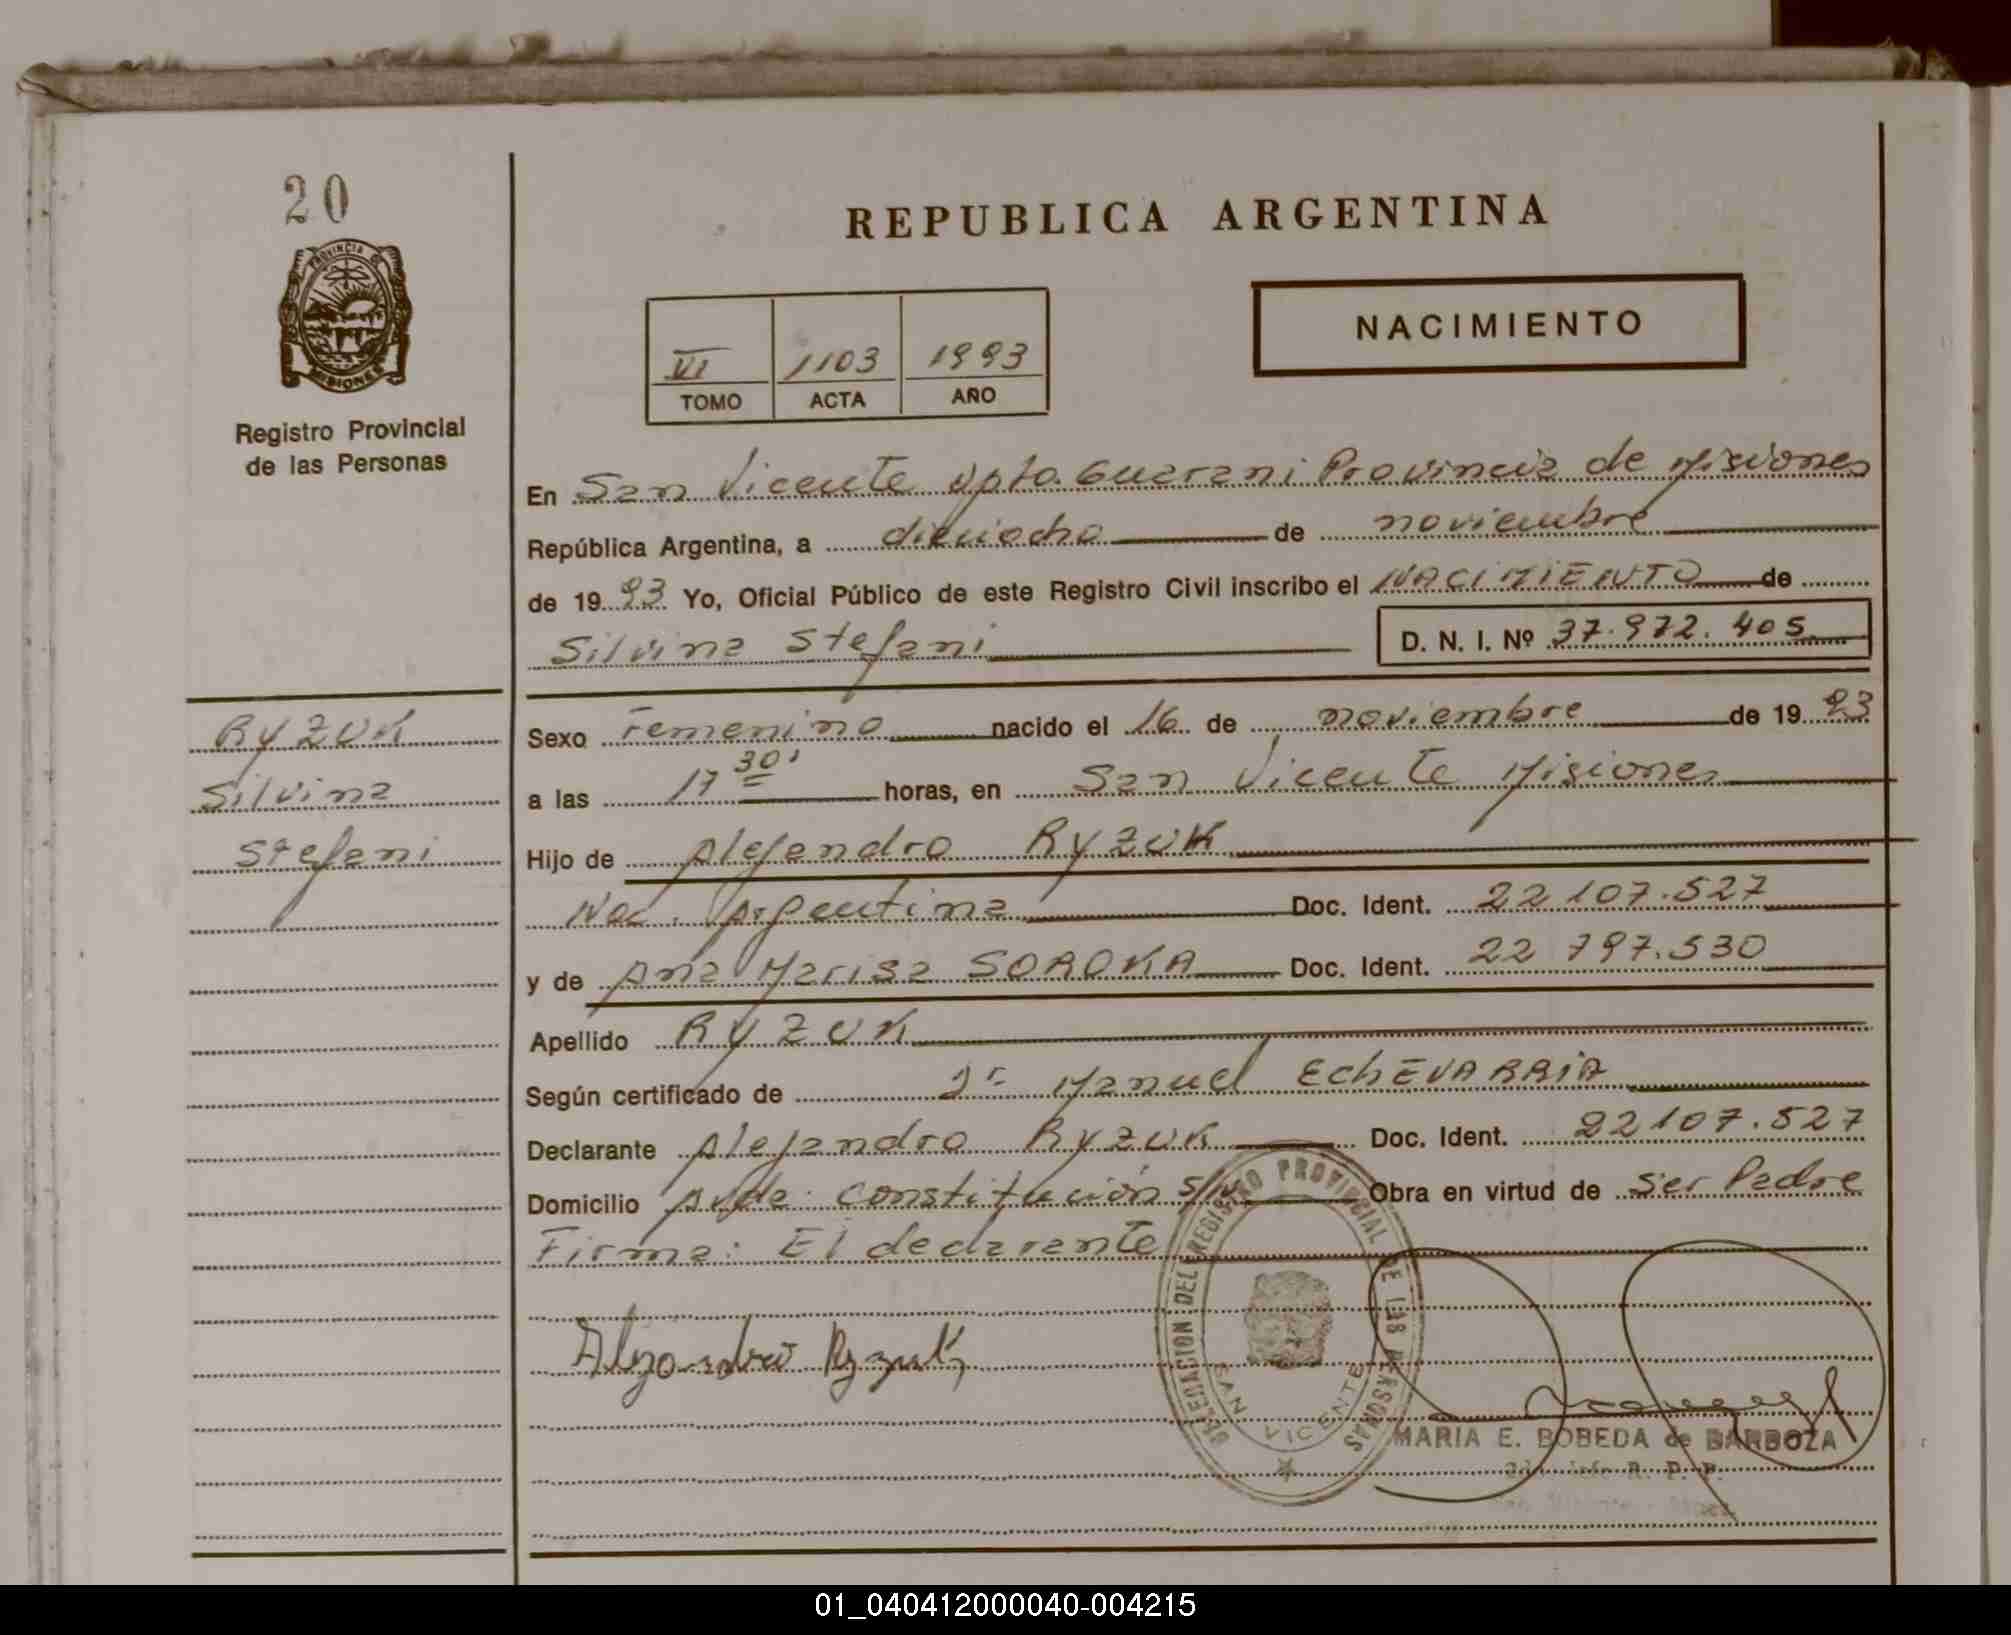 20
PROVINCIA DE
MISIONES
Registro Provincial
de las Personas
REPUBLICA ARGENTINA
NACIMIENTO
VI 1103 1993
TOMO ACTA AÑO
En San Vicente Dpto. Guarani Provincia de Misiones
República Argentina, a dieciocho de noviembre
de 1993 Yo, Oficial Público de este Registro Civil inscribo el NACIMIENTO de
Silvina Stefani D. N. I. Nº 37.972.405
RYZUK
Silvina
Stefani
Sexo Femenino nacido el 16 de noviembre de 1993
a las 17 30' horas, en San Vicente Misiones
Hijo de Alejandro RYZUK
Nac. Argentina Doc. Ident. 22 107.527
y de Ana Marisa SOROKA Doc. Ident. 22 797.530
Apellido RYZUK
Según certificado de Dr Manuel EChEVARRIA
Declarante Alejandro Ryzuk Doc. Ident. 22107.527
Domicilio Avda. Constitución S/N Obra en virtud de Ser Padre
Firma: El declarante
Alejandro Ryzuk
DELEGACION DEL REGISTRO PROVINCIAL DE LAS PERSONAS
SAN VICENTE
MARIA E. BOBEDA de BARBOZA
R. P. P.
01_040412000040-004215